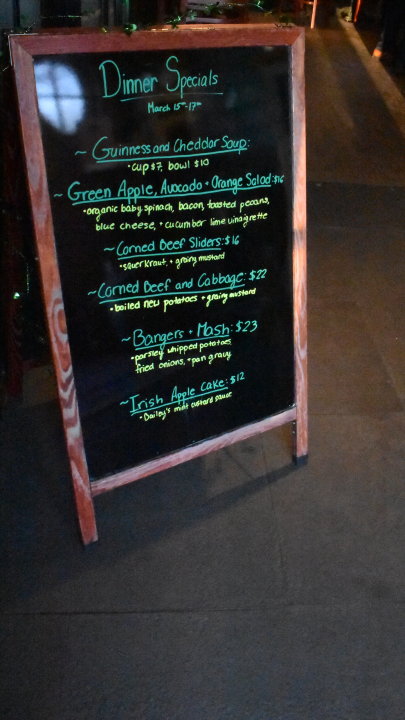 Dinner Specials
March 15th-17th
~ Guinness and Cheddar Soup:
• cup $7, bowl $10
~ Green Apple, Avocado + Orange Salad: $16
• organic baby spinach, bacon, toasted pecans,
blue cheese, + cucumber lime vinaigrette
~ Corned Beef Sliders: $16
• sauerkraut, + grainy mustard
~ Corned Beef and Cabbage: $22
• boiled new potatoes + grainy mustard
~ Bangers + Mash: $23
• parsley whipped potatoes,
fried onions, + pan gravy
~ Irish Apple Cake: $12
• Bailey's mint custard sauce